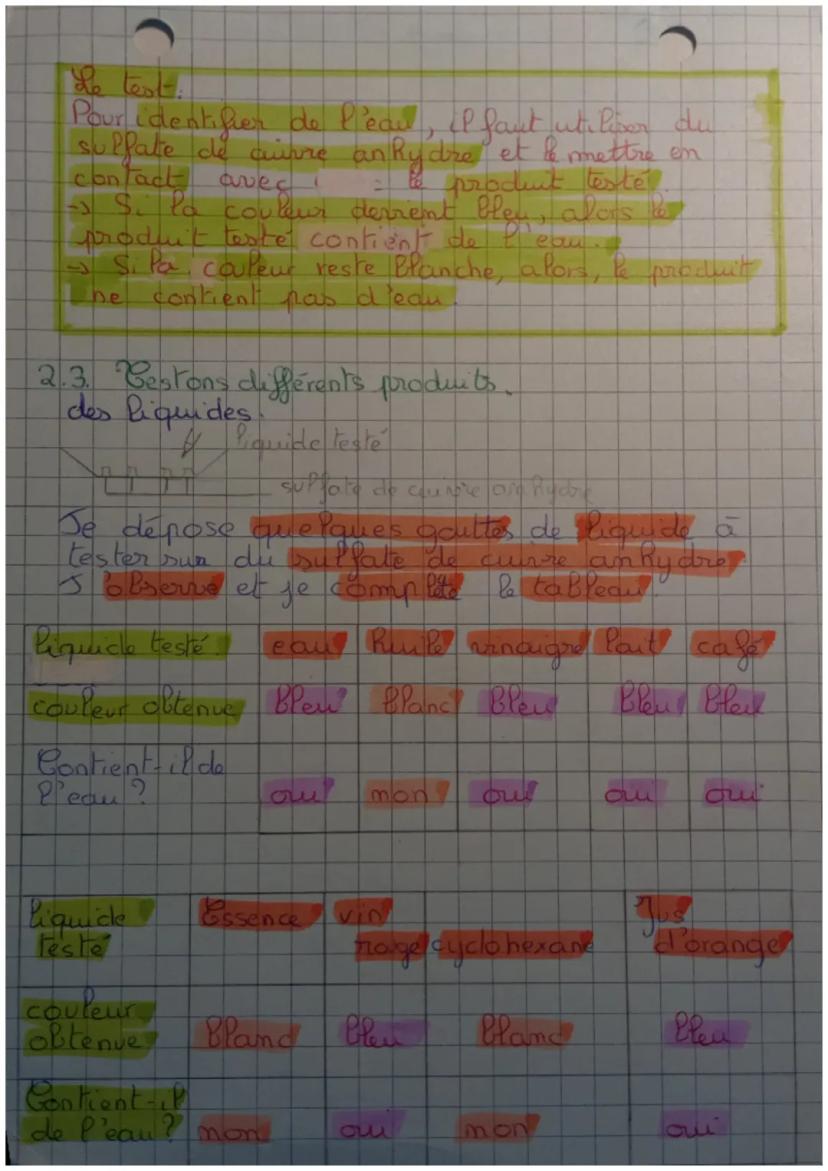 Le test:
Pour identifier de l'eau, il faut utiliser du
sulfate de cuivre anhydre et le mettre en
contact avec le produit testé.
→ Si la couleur devient bleu, alors le
produit testé contient de l'eau.
→ Si la couleur reste blanche, alors, le produit
ne contient pas d'eau.
2.3. Testons différents produits.
des liquides.
liquide testé
sulfate de cuivre anhydre
Je dépose quelques gouttes de liquide à
tester sur du sulfate de cuivre anhydre.
J'observe et je complète le tableau.
liquide testé eau huile vinaigre lait café
couleur obtenue bleu blanc bleu bleu bleu
Contient-il de
l'eau ? oui non oui oui oui
liquide Essence vin Jus
testé rouge cyclohexane d'orange
couleur
obtenue blanc bleu blanc bleu
Contient-il
de l'eau ? non oui non oui